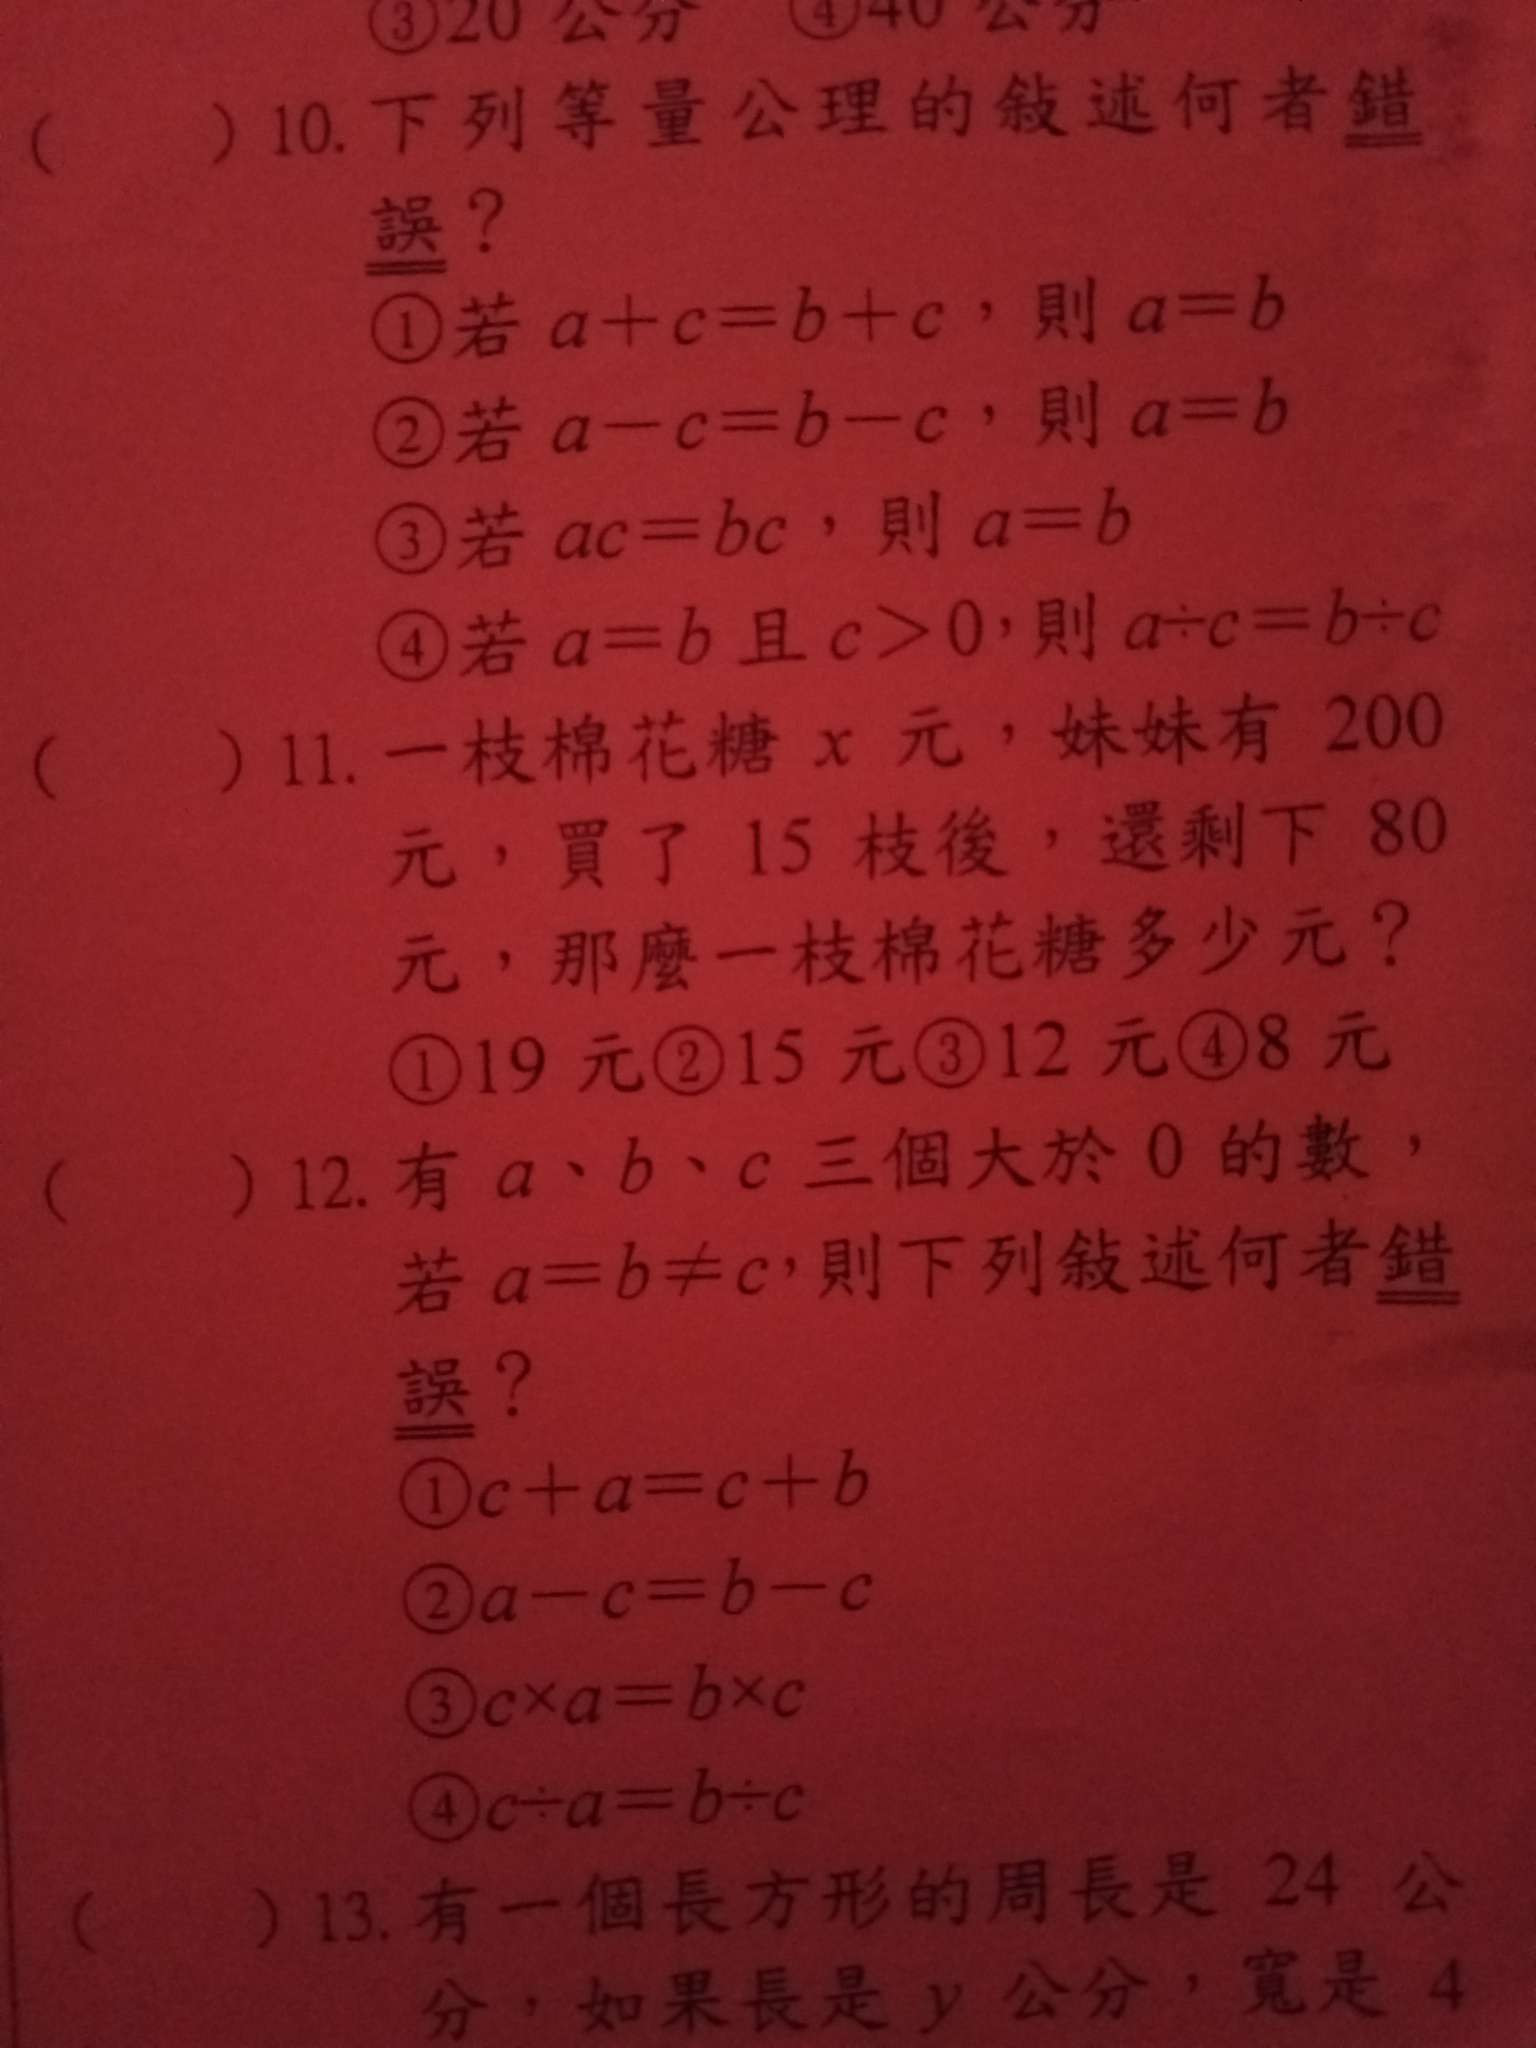 ③20 公分 ④40 公分
( )10. 下列等量公理的敍述何者錯
誤？
①若 a＋c＝b＋c，則 a＝b
②若 a－c＝b－c，則 a＝b
③若 ac＝bc，則 a＝b
④若 a＝b 且 c＞0，則 a÷c＝b÷c
( )11. 一枝棉花糖 x 元，妹妹有 200
元，買了 15 枝後，還剩下 80
元，那麼一枝棉花糖多少元？
①19 元②15 元③12 元④8 元
( )12. 有 a、b、c 三個大於 0 的數，
若 a＝b≠c，則下列敍述何者錯
誤？
①c＋a＝c＋b
②a－c＝b－c
③c×a＝b×c
④c÷a＝b÷c
( )13. 有一個長方形的周長是 24 公
分，如果長是 y 公分，寬是 4